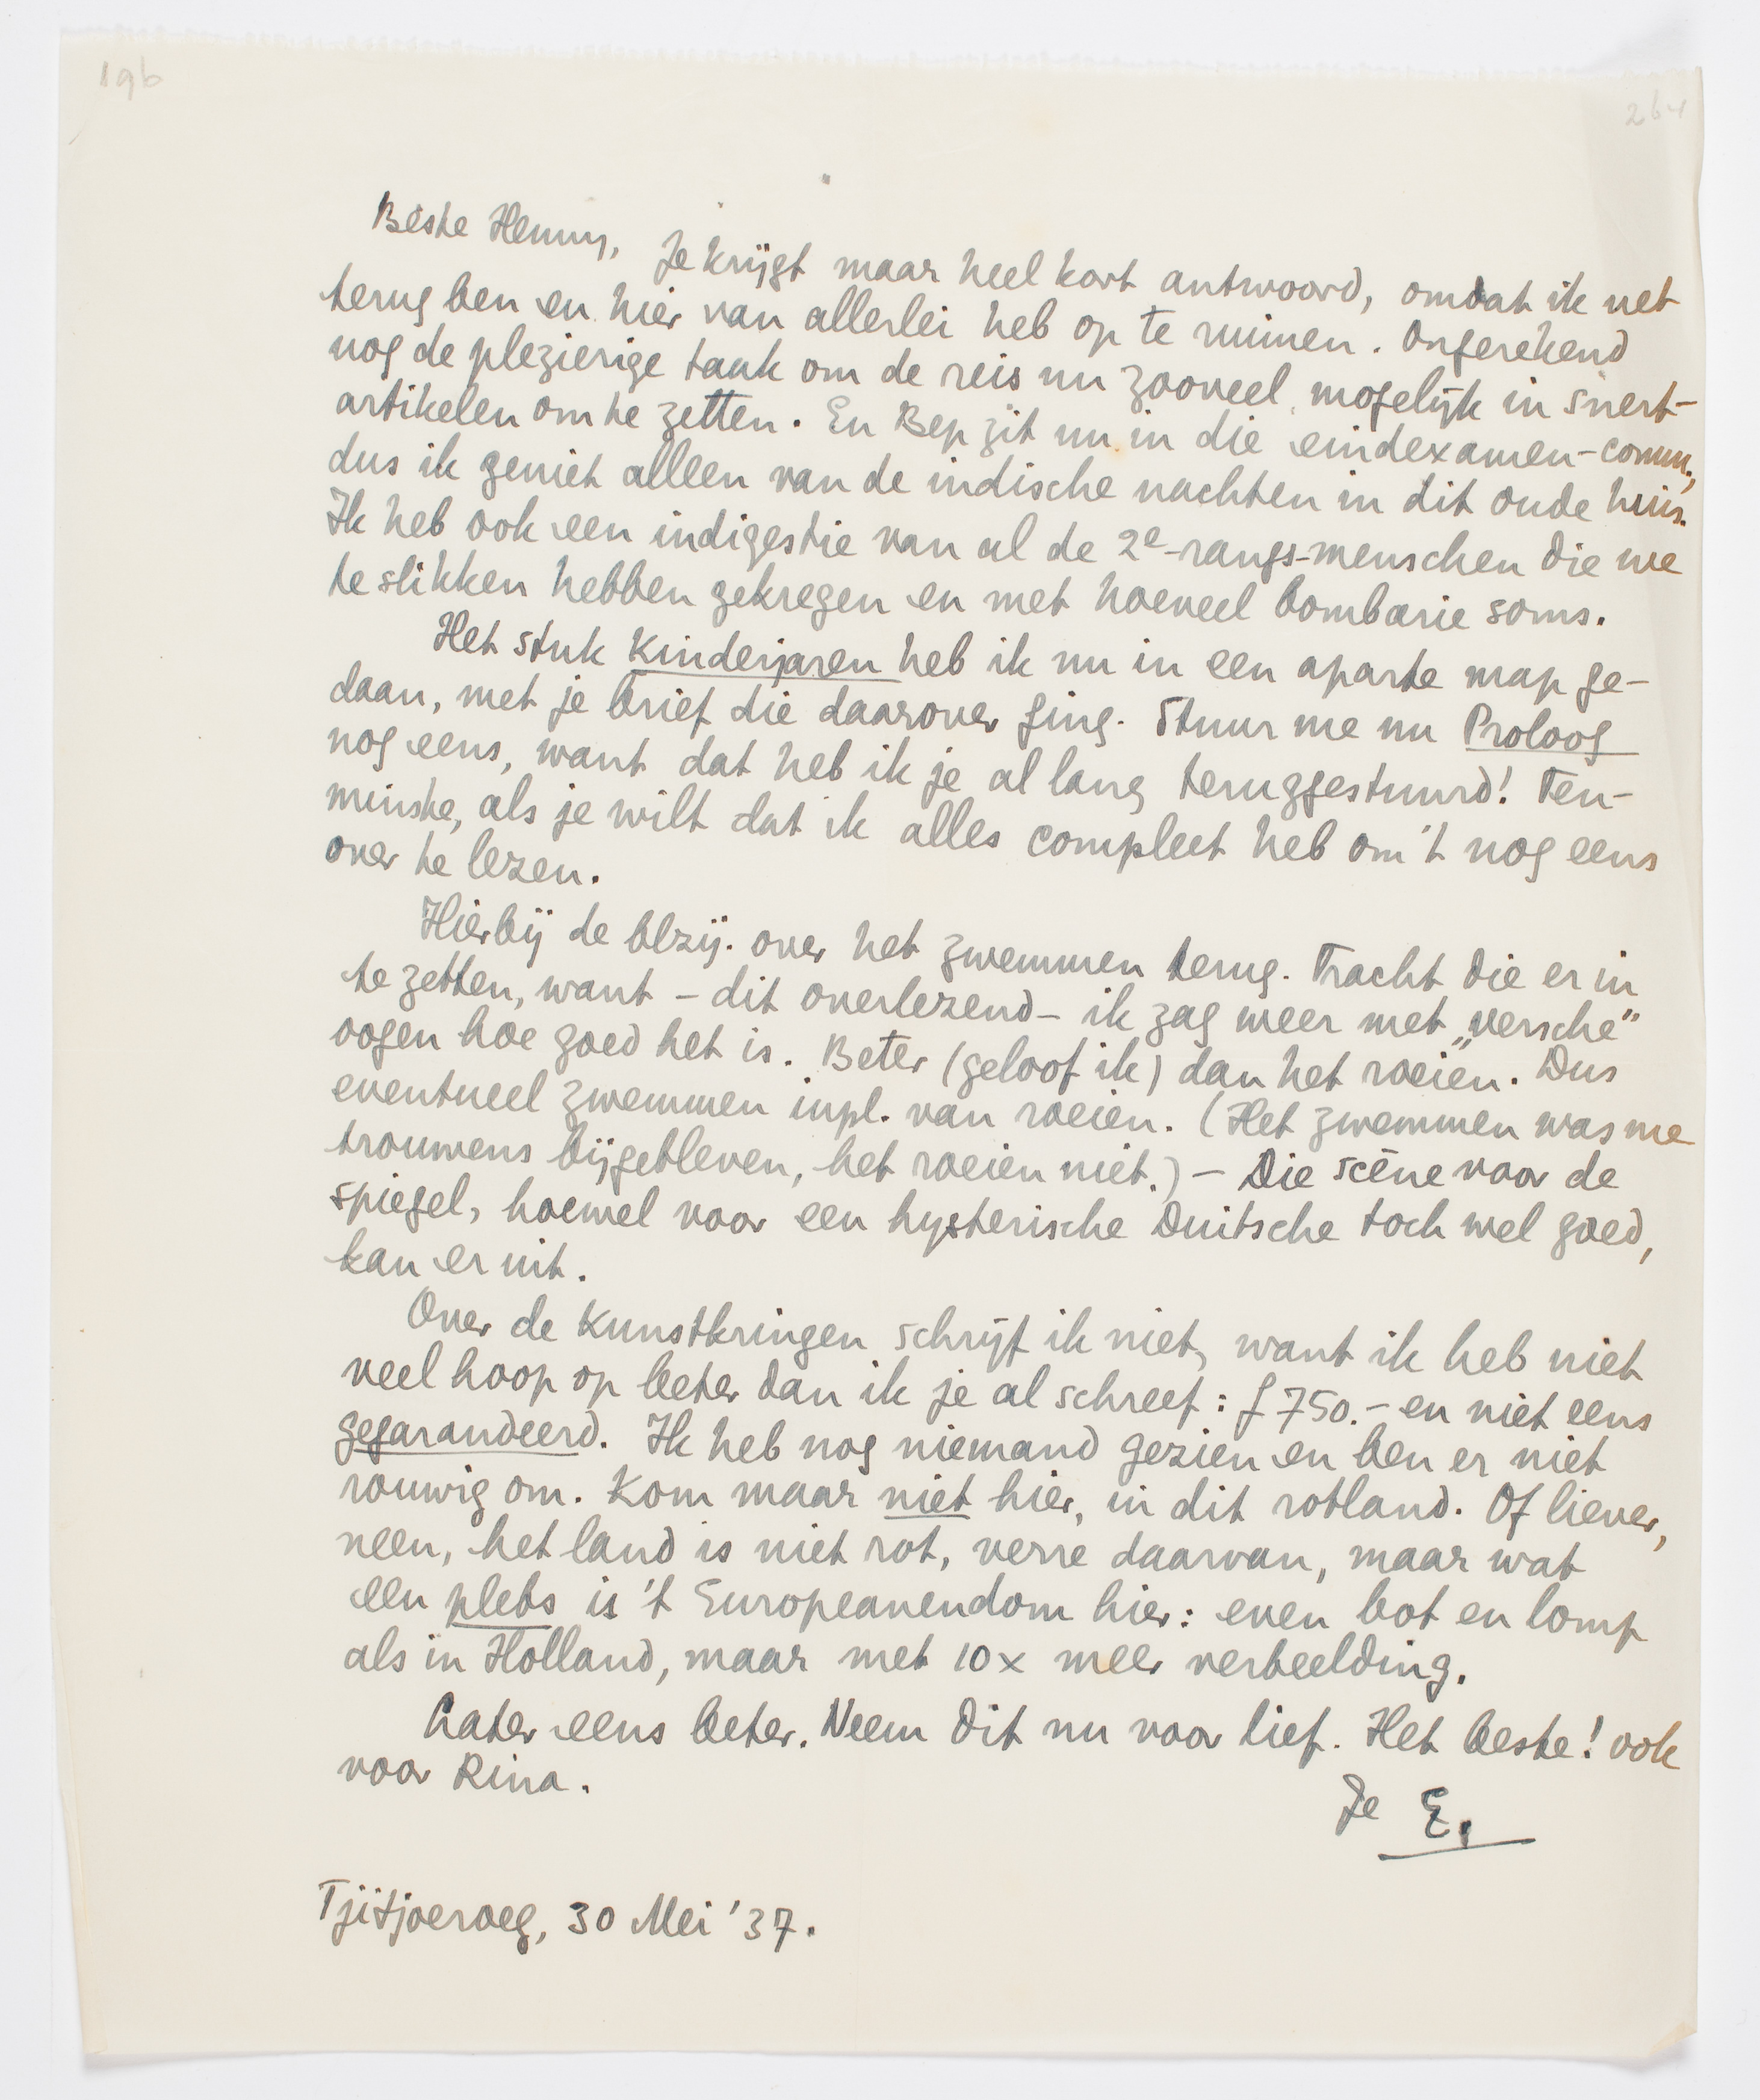 196
264
Beste Henny, Je krijgt maar heel kort antwoord, omdat ik net
terug ben en hier van allerlei heb op te ruimen. Ongerekend
nog de plezierige taak om de reis nu zooveel mogelijk in snert-
artikelen om te zetten. En Bep zit nu in die eindexamen-comm.,
dus ik geniet alleen van de indische nachten in dit oude huis.
Ik heb ook een indigestie van al de 2e-rangs-menschen die we
te slikken hebben gekregen en met hoeveel bombarie soms.
Het stuk Kinderjaren heb ik nu in een aparte map ge-
daan, met je brief die daarover ging. Stuur me nu Proloog
nog eens, want dat heb ik je al lang teruggestuurd! Ten-
minste, als je wilt dat ik alles compleet heb om 't nog eens
over te lezen.
Hierbij de blzij. over het zwemmen terug. Tracht die er in
te zetten, want - dit overlezend - ik zag weer met „versche"
oogen hoe goed het is. Beter (geloof ik) dan het roeien. Dus
eventueel zwemmen inpl. van roeien. (Het zwemmen was me
trouwens bijgebleven, het roeien niet.) - Die scène voor de
spiegel, hoewel voor een hysterische Duitsche toch wel goed,
kan er uit.
Over de Kunstkringen schrijf ik niet, want ik heb niet
veel hoop op beter dan ik je al schreef: f 750.- en niet eens
gegarandeerd. Ik heb nog niemand gezien en ben er niet
rouwig om. Kom maar niet hier, in dit rotland. Of liever,
neen, het land is niet rot, verre daarvan, maar wat
een plebs is 't Europeanendom hier: even bot en lomp
als in Holland, maar met 10x meer verbeelding.
Later eens beter. Neem dit nu voor lief. Het beste! ook
voor Rina.
Je E.
Tjitjoeroeg, 30 Mei '37.